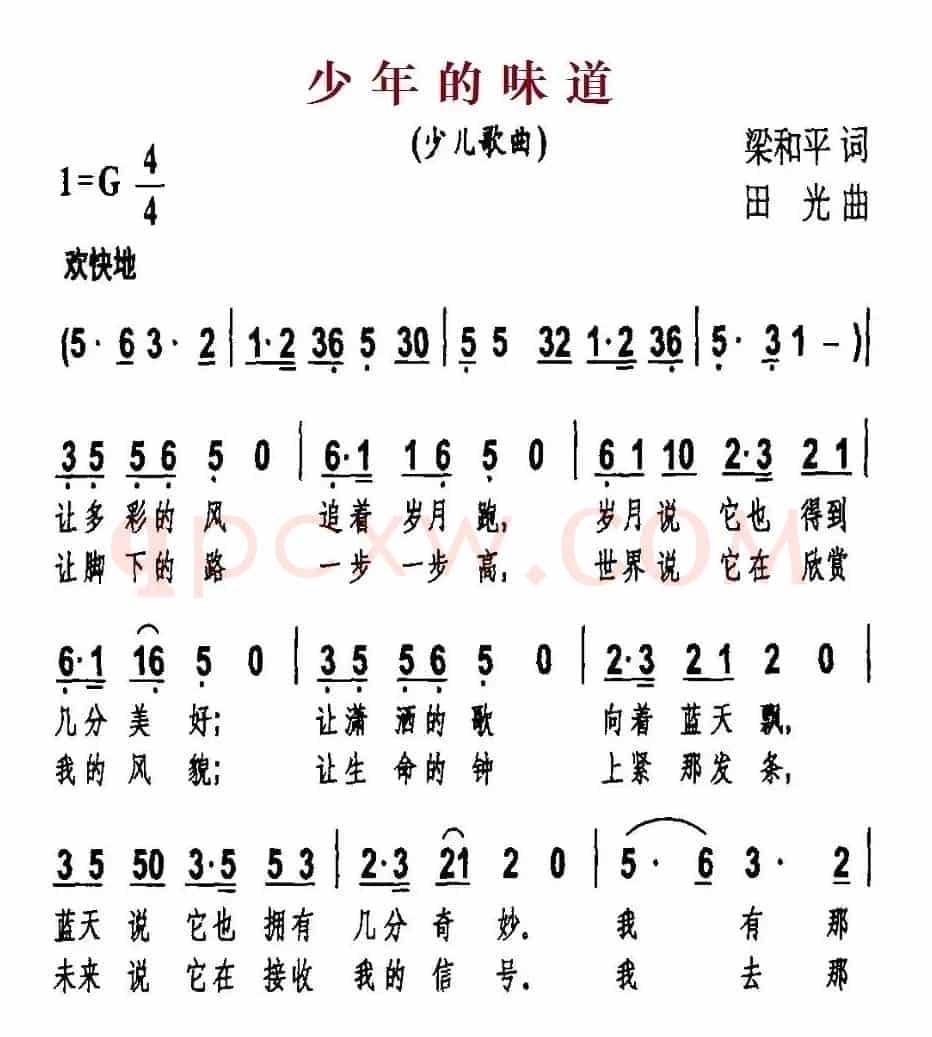 少年的味道
(少儿歌曲)
梁和平 词
1=G 4/4
田 光 曲
欢快地
(5· 6 3· 2 | 1·2 36 5 30 | 5 5 32 1·2 36 | 5· 3 1 – )|
3 5 5 6 5 0 | 6·1 1 6 5 0 | 6 1 10 2·3 2 1 |
让多 彩的 风 追着 岁月 跑, 岁月 说 它也 得到
让脚 下的 路 一步 一步 高, 世界 说 它在 欣赏
qpcxw.com
6·1 16 5 0 | 3 5 5 6 5 0 | 2·3 2 1 2 0 |
几分 美 好; 让潇 洒的 歌 向着 蓝天 飘,
我的 风 貌; 让生 命的 钟 上紧 那发 条,
3 5 50 3·5 5 3 | 2·3 21 2 0 | 5· 6 3· 2 |
蓝天 说 它也 拥有 几分 奇 妙. 我 有 那
未来 说 它在 接收 我的 信 号. 我 去 那